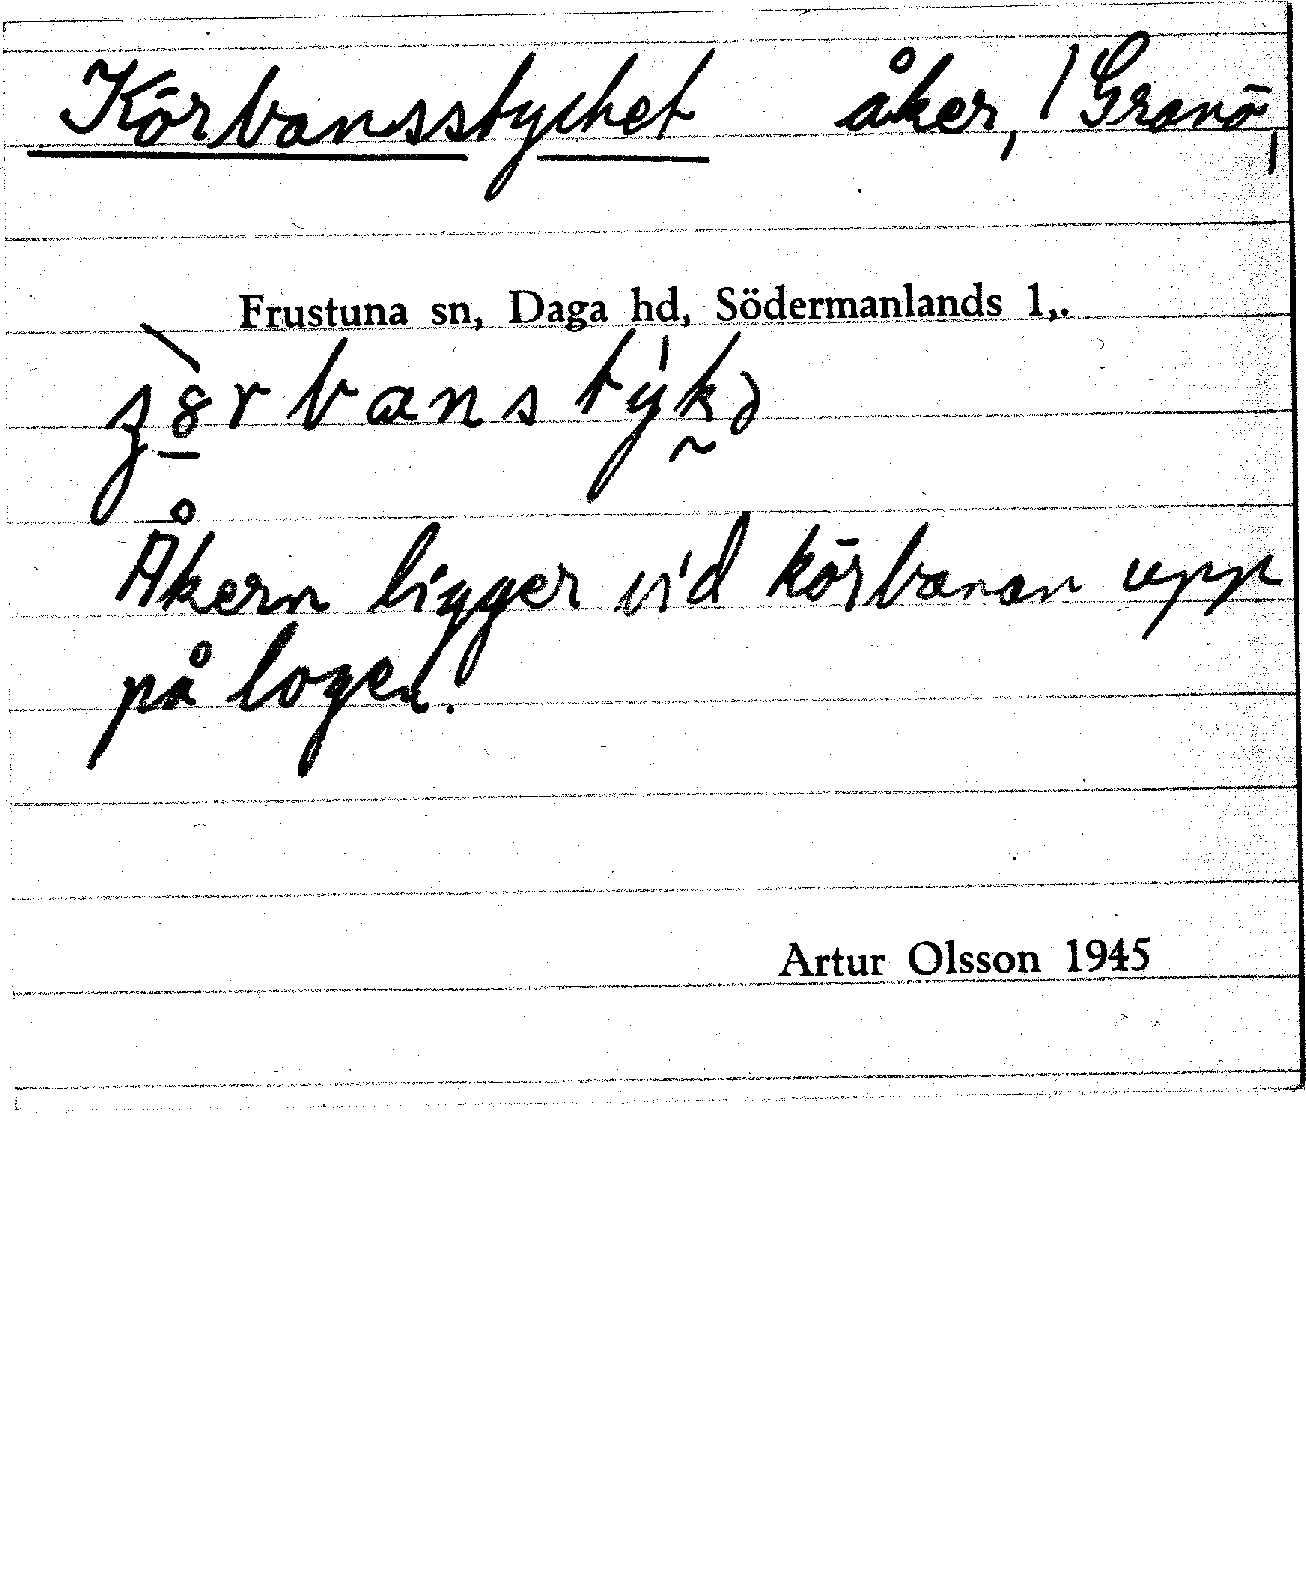 Körbansstycket åker, / Granö,
Frustuna sn, Daga hd, Södermanlands l,.
Åkern ligger vid körbanan upp
på logen.
Artur Olsson 1945